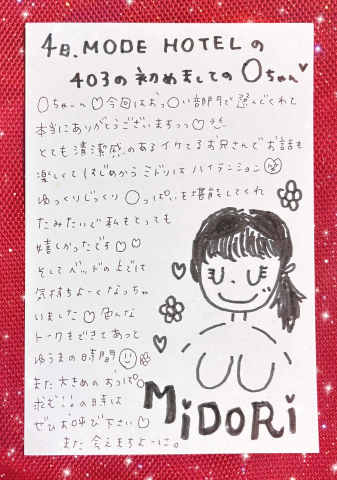 4日、MODE HOTELの
403の初めましての〇ちゃん♥
〇ちゃーん♡今回はおっ〇い部門で選んでくれて
本当にありがとうございますっっ♡
とても清潔感のあるイケてるお兄さんでお話も
楽しくてはじめからミドリはハイテンション
ゆっくりじっくり〇っぱいを堪能してくれ
たみたいで私もとっても
嬉しかったです♡♡
そしてベッドの上では
気持ちよーくなっちゃ
いました♡色んな
トークもできてあって
ゆうまの時間
また大きめのおっぱ〇
求む!!の日は
ぜひお呼び下さい♡
また会えますよーに。
MiDORi